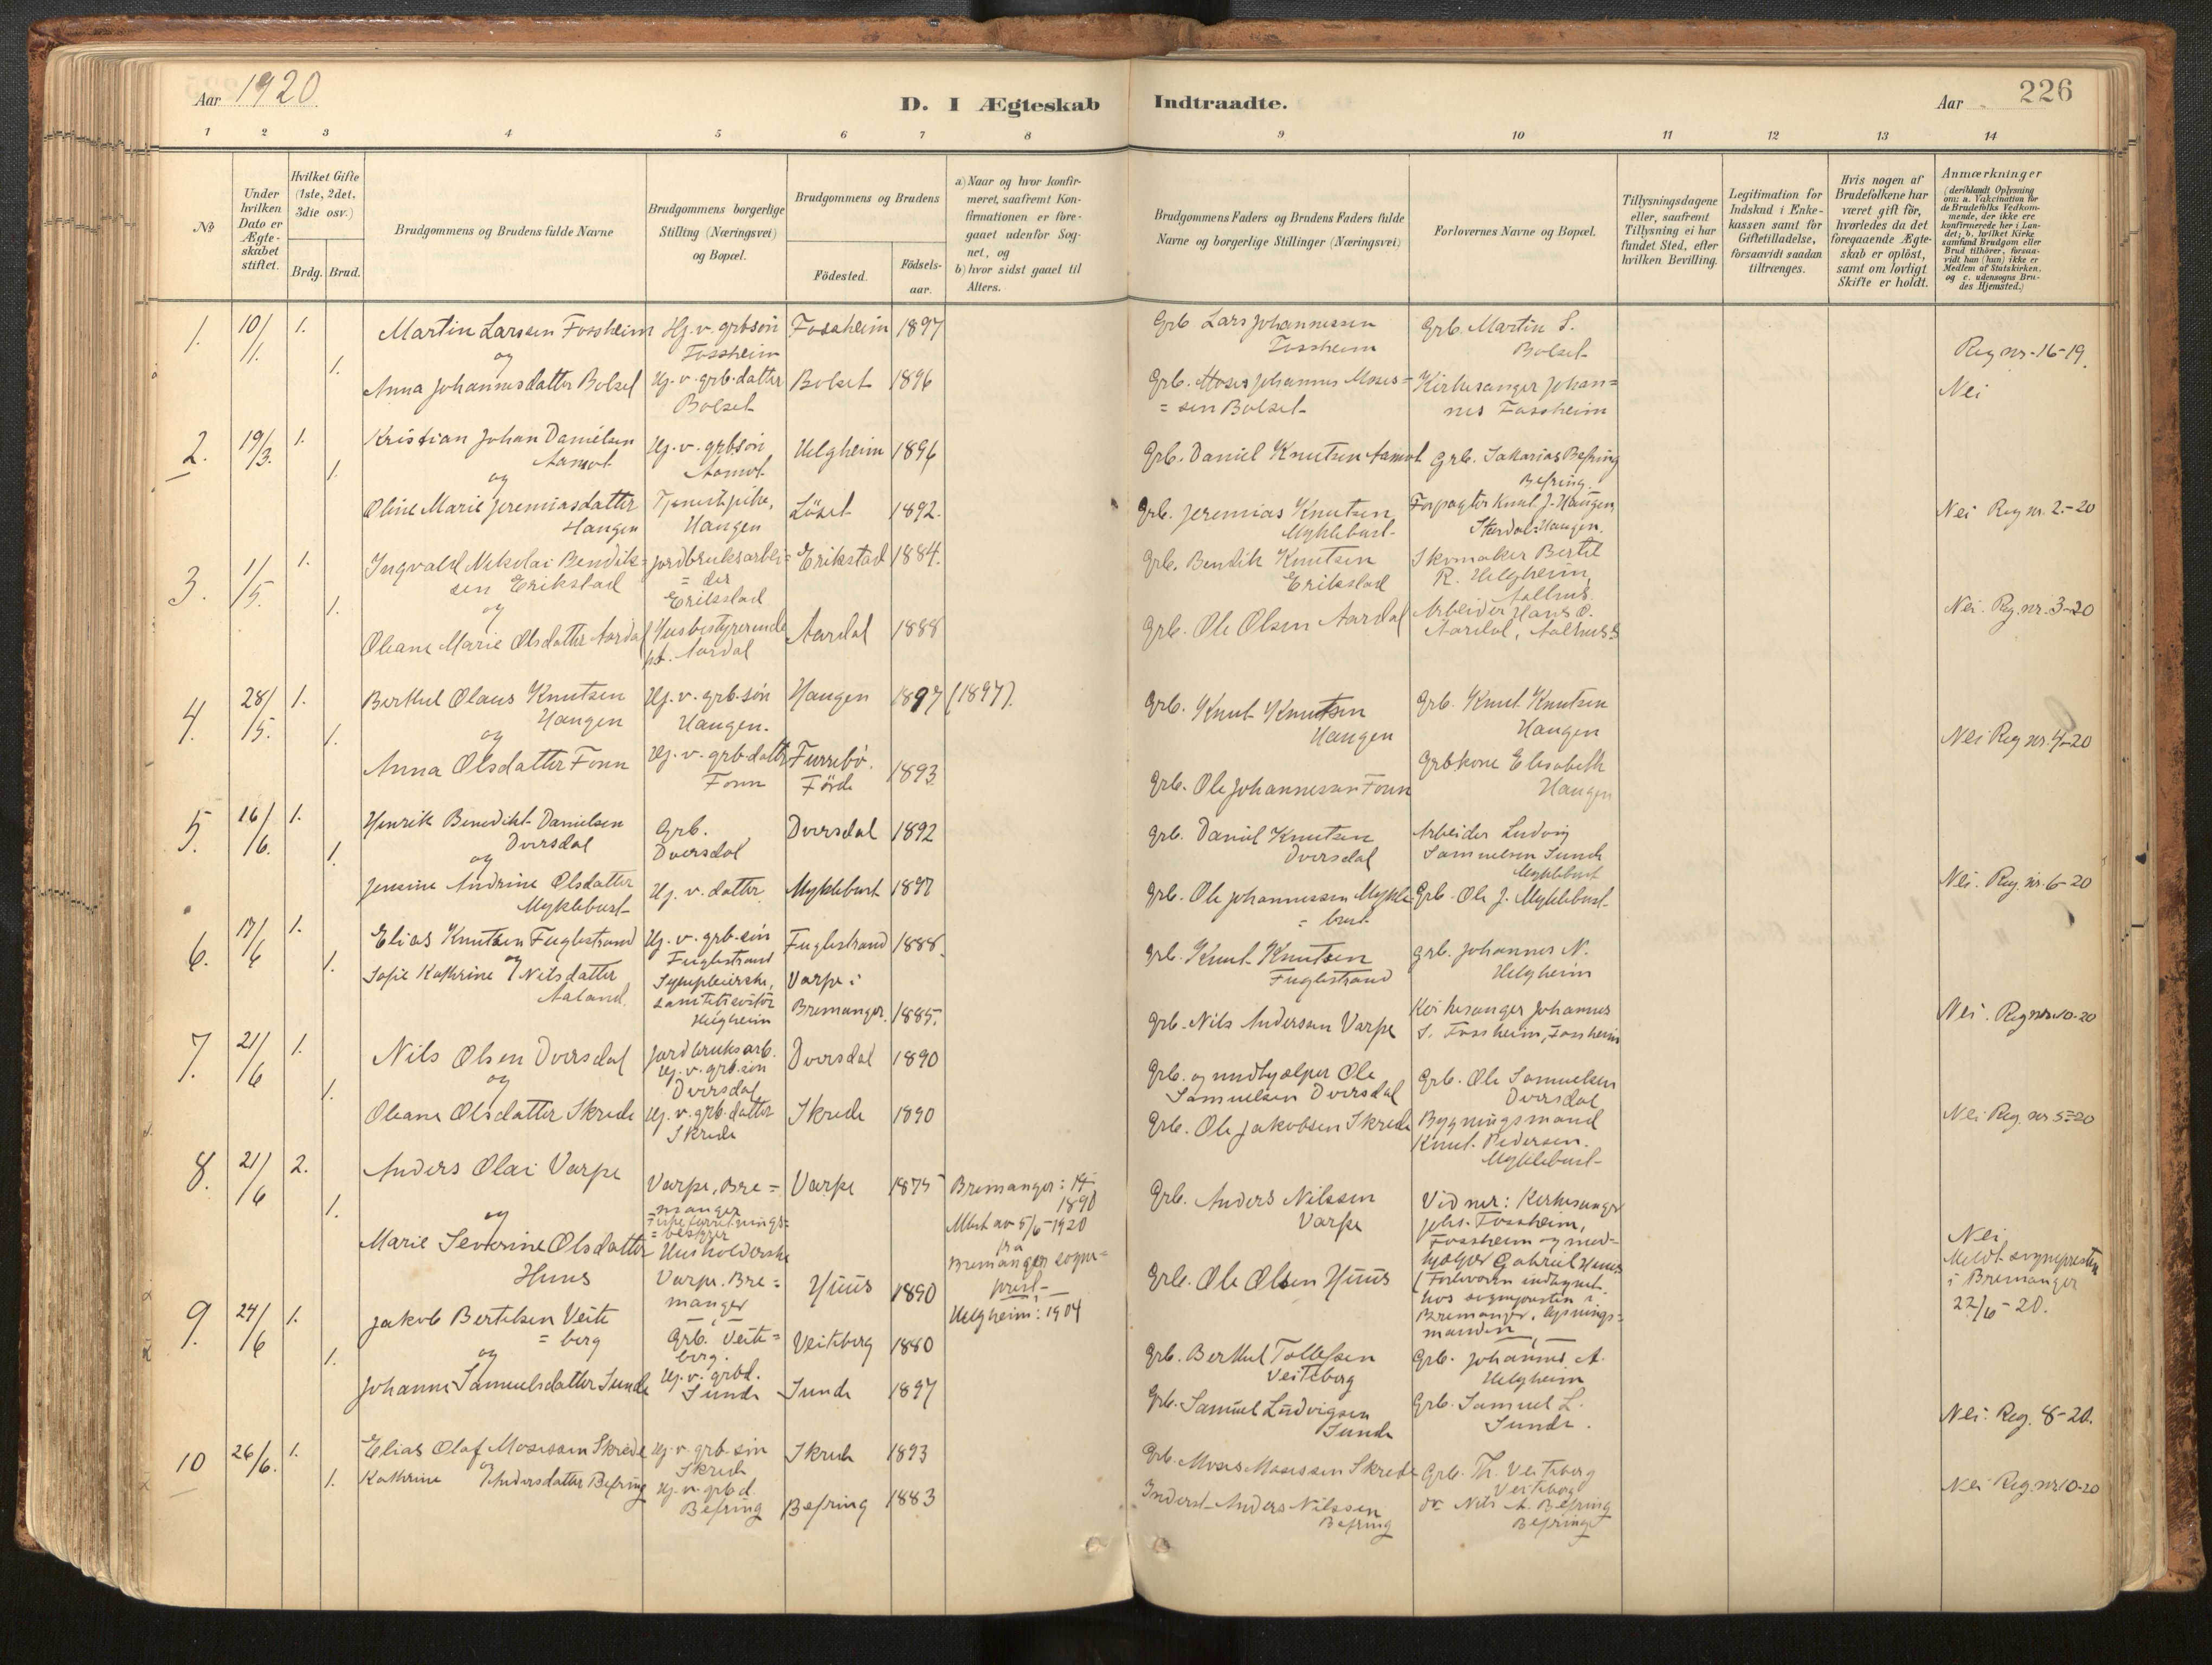 Aar 1920.
D. I Ægteskab Indtraadte.
Aar 226
1 2 3 4 5 6 7 8 9 10 11 12 13 14
№
Under hvilken Dato er Ægteskabet stiftet.
Hvilket Gifte (1ste, 2det, 3die osv.)
Brdg. Brud.
Brudgommens og Brudens fulde Navne
Brudgommens borgerlige Stilling (Næringsvei) og Bopæl.
Brudgommens og Brudens
Födested.
Födsels-aar.
a) Naar og hvor konfir-
meret, saafremt Kon-
firmationen er fore-
gaaet udenfor Sog-
net, og
b) hvor sidst gaaet til
Alters.
Brudgommens Faders og Brudens Faders fulde
Navne og borgerlige Stillinger (Næringsvei)
Forlovernes Navne og Bopæl.
Tillysningsdagene
eller, saafremt
Tillysning ei har
fundet Sted, efter
hvilken Bevilling.
Legitimation for
Indskud i Enke-
kassen samt for
Giftetilladelse,
forsaavidt saadan
tiltrænges.
Hvis nogen af
Brudefolkene har
været gift för,
hvorledes da det
foregaaende Ægte-
skab er oplöst,
samt om lovligt
Skifte er holdt.
Anmærkninger
(deriblandt Oplysning
om: a. Vakcination for
de Brudefolks Vedkom-
mende, der ikke ere
konfirmerede her i Lan-
det; b. hvilket Kirke
samfund Brudgom eller
Brud tilhörer, forsaa-
vidt han (hun) ikke er
Medlem af Statskirken,
og c. udensogns Bru-
des Hjemsted.)
1. 10/1. 1. Martin Larssen Fossheim Hj. v. grbsøn Fossheim Fossheim 1897 Grb Lars Johannessen Fossheim Grb. Martin S. Bolset Reg nr. 16-19.
og
1. Anna Johannesdatter Bolset Hj. v. grb. datter Bolset Bolset 1896 Grb. Moses Johannes Moses= =sen Bolset Kirkesanger Johan= nes Fossheim Nei
2. 19/3. 1. Kristian Johan Danielsen Aamot Hj. v. grbsøn Aamot Helgheim 1896 Grb. Daniel Knutsen Aamot Grb. Sakarias Befring Befring.
og
1. Oline Marie Jeremiasdatter Haugen Tjenestpike, Haugen Löset 1892. Grb. Jeremias Knutsen Myklebust Forpagter Knut J. Haugen, Stardal=Haugen. Nei Reg nr. 2-20
3. 1/5. 1. Ingvald Nikolai Bendik= sen Erikstad Jordbruksarbei= =der Erikstad Erikstad 1884. Grb. Bendik Knutsen Erikstad Skomaker Bertil R. Helgheim, Aalhus.
og
1. Oleane Marie Olsdatter Aardal Husbestyrerinde Aardal Aardal 1888 Grb. Ole Olsen Aardal Arbeider Hans O. Aardal, Aalhus Nei. Reg. nr. 3-20
4. 28/5. 1. Berthel Olaus Knutsen Haugen Hj. v. grb. søn Haugen. Haugen 1897 (1897). Grb. Knut Knutsen Haugen Grb. Knut Knutsen Haugen
og
1. Anna Olsdatter Fonn Hj. v. grb. datter Fonn Furrebø. Förde 1893 Grb. Ole Johannessen Fonn Grbkone Elisabeth Haugen Nei Reg nr. 4-20
5. 16/6. 1. Henrik Benedikt Danielsen Dvergsdal Grb. Dvergsdal Dvergsdal 1892 Grb. Daniel Knutsen Dvergsdal Arbeider Ludvig Samuelsen Sunde Myklebust
og
1. Jensine Andrine Olsdatter Myklebust Hj. v. datter Myklebust 1897 Grb. Ole Johannessen Mykle= =bust Grb. Ole J. Myklebust Nei. Reg. nr. 6-20
6. 17/6 1. Elias Knutsen Fuglestrand Hj. v. grb. søn Fuglestrand Fuglestrand 1888. Grb. Knut Knutsen Fuglestrand Grb. Johannes N. Helgheim
og
1. Sofie Kathrine Nilsdatter Aaland. Sykepleierske, Helgheim Varpe i Bremanger. 1885. Grb. Nils Andersen Varpe Kirkesanger Johannes S. Fossheim, Fossheim Nei. Reg nr. 10-20
7. 21/6 1. Nils Olsen Dvergsdal Jordbruksarb. Hj. v. grb. søn Dvergsdal Dvergsdal 1890 Grb. og Ole Samuelsen Dvergsdal Grb. Ole Samuelsen Dvergsdal
og
1. Oleane Olsdatter Skrede Hj. v. grb. datter Skrede Skrede 1890 Grb. Ole Jakobsen Skrede Bygningsmand Knut Pedersen. Myklebust Nei Reg. nr 5-20
8. 21/6 2. Anders Olai Varpe Varpe, Bre= =manger Varpe 1875 Bremanger: 1890 Grb. Anders Nilssen Varpe Vidner: Kirkesanger Johs. Fossheim, Fossheim og med= hjælper Gabriel Huus
og
1. Marie Severine Olsdatter Huus Husholderske Varpe. Bre= manger Huus 1890 Attest av 5/6-1920 fra Bremanger sogne= prest Helgheim: 1904 Grb. Ole Olsen Huus (Forloverne indtegnet hos sognepresten i Bremanger. lysnings= manden Nei Meldt sognepresten i Bremanger 22/6-20.
9. 24/6 1. Jakob Bertelsen Veite =berg Grb. Veite= berg. Veiteberg 1880 Grb. Berthel Tollefsen Veiteberg Grb. Johannes A. Helgheim
og
1. Johanne Samuelsdatter Sunde Hj. v. grbd. Sunde Sunde 1897 Grb. Samuel Ludvigsen Sunde Grb. Samuel L. Sunde. Nei: Reg. 8-20.
10 26/6. 1. Elias Olaf Mosessen Skrede Hj. v. grb. søn Skrede Skrede 1893 Grb. Moses Mosessen Skrede Grb. Th. Veiteberg Veiteberg
og
1. Kathrine Andersdatter Befring Hj. v. grb d. Befring Befring 1883 Inderst Anders Nilssen Befring do. Nils A. Befring Befring Nei Reg. nr 10-20